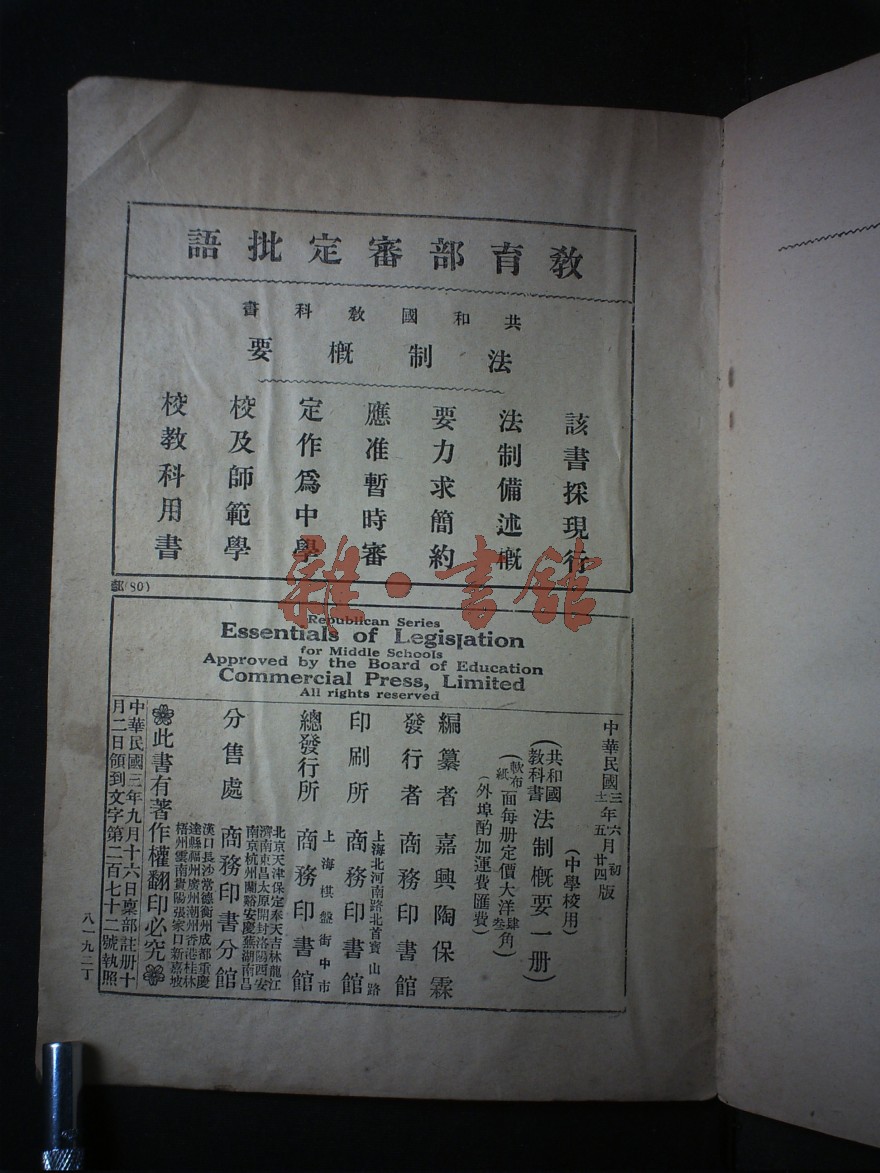 教育部審定批語
共和國教科書
法制概要
該書採現行
法制備述概
要力求簡約
應准暫時審
定作爲中學
校及師範學
校教科用書
部(80)
雜·書館
Republican Series
Essentials of Legislation
for Middle Schools
Approved by the Board of Education
Commercial Press, Limited
All rights reserved
中華民國三年六月初版
十一年五月廿四版
(中學校用)
(共和國教科書 法制概要一册)
(軟布面每册定價大洋肆角)
(紙面每册定價大洋叁角)
(外埠酌加運費匯費)
編纂者 嘉興陶保霖
發行者 商務印書館
上海北河南路北首寶山路
印刷所 商務印書館
上海棋盤街中市
總發行所 商務印書館
北京天津保定奉天吉林龍江
濟南東昌太原開封洛陽西安
南京杭州蘭谿安慶蕪湖南昌
分售處 商務印書分館
漢口長沙常德衡州成都重慶
達縣福州廣州潮州香港桂林
梧州雲南貴陽張家口新嘉坡
此書有著作權翻印必究
中華民國三年九月十六日禀部註册十
月二日領到文字第二百七十二號執照
八一九二丁